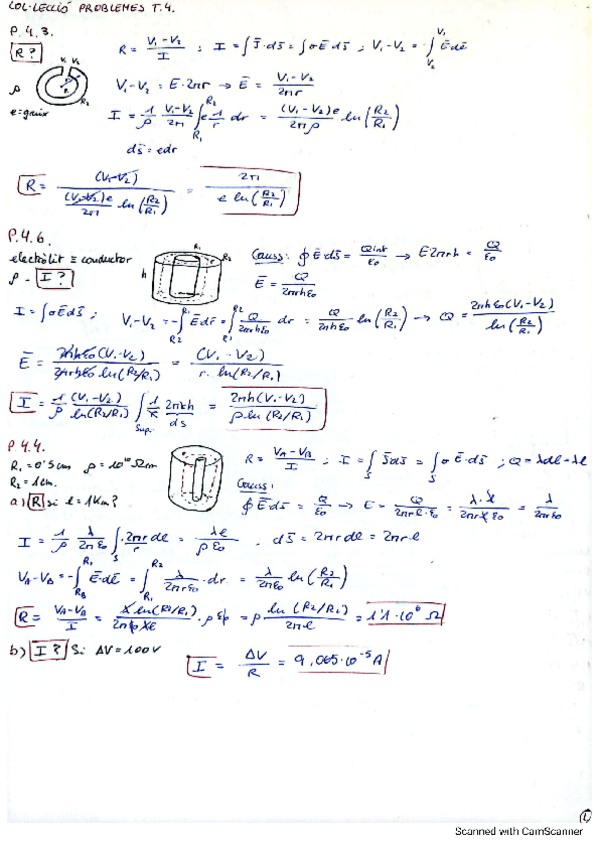 COL·LECCIÓ PROBLEMES T.4.
P.4.3.
R?
R = (V₁-V₂)/I ; I = ∫J̄·ds̄ = ∫σĒds̄ ; V₁-V₂ = -∫_{V₂}^{V₁} Ēdl̄
V₁ V₂
R₂
ρ
e=gruix
V₁-V₂ = E·2πr → Ē = (V₁-V₂)/2πr
I = 1/ρ (V₁-V₂)/2π ∫_{R₁}^{R₂} e 1/r dr = (V₁-V₂)e/2πρ ln(R₂/R₁)
ds̄ = edr
R = (V₁-V₂)/((V₁-V₂)e/2π ln(R₂/R₁)) = 2π/(e ln(R₂/R₁))
P.4.6.
electròlit ≡ conductor
ρ - I?
h R₁ R₂
Gauss: ∮Ēds̄ = Qint/ε₀ → E·2πrh = Q/ε₀
Ē = Q/2πrhε₀
I = ∫σĒds̄ ; V₁-V₂ = -∫_{R₂}^{R₁} Ēdr̄ = ∫_{R₁}^{R₂} Q/2πrhε₀ dr = Q/2πhε₀ ln(R₂/R₁) → Q = 2πhε₀(V₁-V₂)/ln(R₂/R₁)
Ē = 2πhε₀(V₁-V₂)/2πrhε₀ ln(R₂/R₁) = (V₁-V₂)/r·ln(R₂/R₁)
I = 1/ρ (V₁-V₂)/ln(R₂/R₁) ∫_{Sup.} 1/r 2πrh ds = 2πh(V₁-V₂)/ρ·ln(R₂/R₁)
P.4.4.
R₁=0'5cm ρ=10¹⁰Ωm
R₂=1cm.
a) R si l=1Km?
R = (V_A-V_B)/I ; I = ∫_S J̄ds̄ = ∫_S σĒ·ds̄ ; Q=λdl=λl
Gauss:
∮Ēds̄ = Q/ε₀ → E = Q/2πrl·ε₀ = λ·l/2πrlε₀ = λ/2πrε₀
I = 1/ρ λ/2πε₀ ∫_S 2πrdl/r = λl/ρε₀ . ds̄ = 2πrdl = 2πr·l
V_A-V_B = -∫_{R_B}^{R₁} Ēdl̄ = ∫_{R₁}^{R₂} λ/2πrε₀·dr = λ/2πε₀ ln(R₂/R₁)
R = (V_A-V_B)/I = λln(R₂/R₁)/2πε₀λl · ρε₀ = ρ ln(R₂/R₁)/2πl = 1'1·10⁶ Ω
b) I? Si ΔV=100V
I = ΔV/R = 9,065·10⁻⁵A
1
Scanned with CamScanner